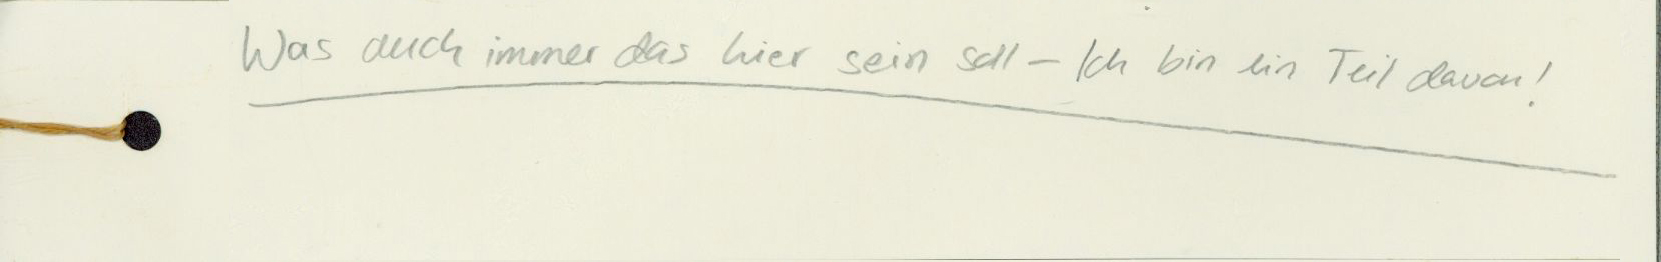 Was auch immer das hier sein soll – Ich bin ein Teil davon!